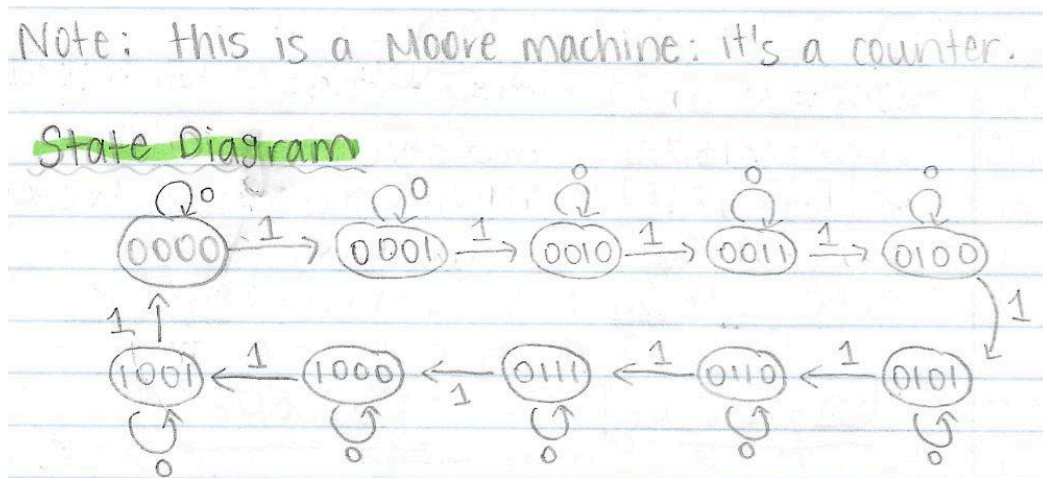 Note: this is a Moore machine: it's a counter.
State Diagram
0 0 0 0 0
0000 1 0001 1 0010 1 0011 1 0100
1 1
1001 1 1000 1 0111 1 0110 1 0101
0 0 0 0 0